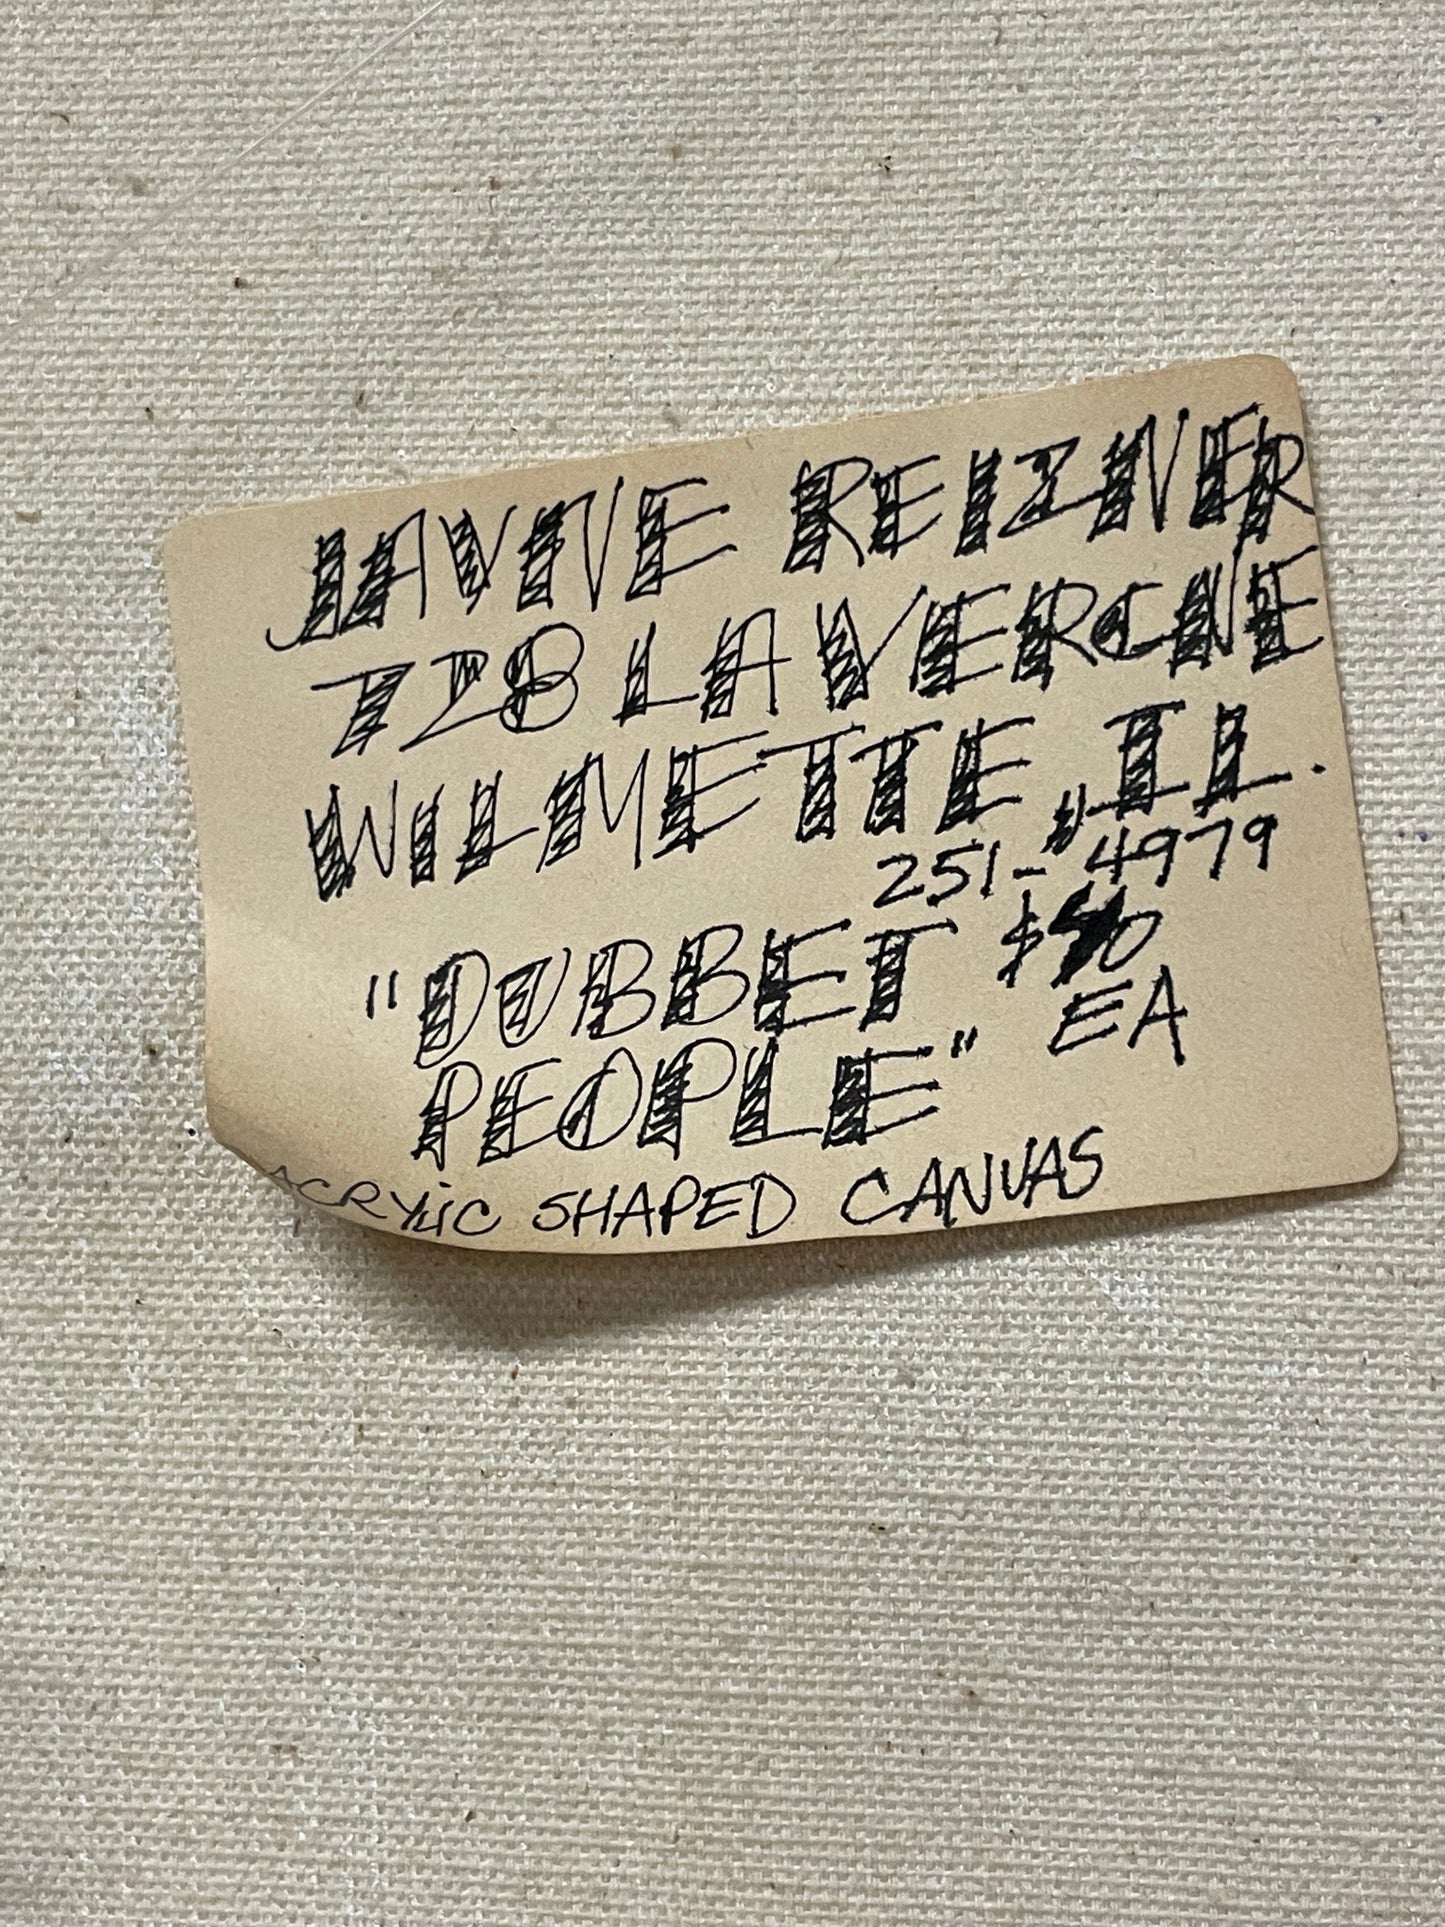 JAYNE REIZNER
728 LAVERGNE
WILMETTE, IL.
251-4979
"DUBBET
PEOPLE"
EA
ACRYLIC SHAPED CANVAS